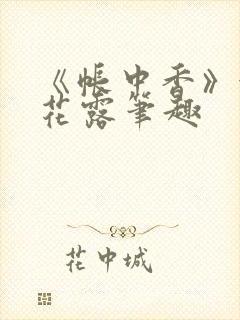 《帐中香》
花露笔趣
花中城